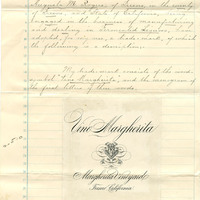 Rogers of Fresno in the county
of Fresno, and State of California,
engaged in the business of manufacturing
and dealing in
adopted for my use, a trade-mark, of which
the following is a description:
My trade-mark consists of the word-
symbol "Vino Margherita", and the monogram of
the first letters of these words.
Vino Margherita
Margherita Vineyard
Fresno California